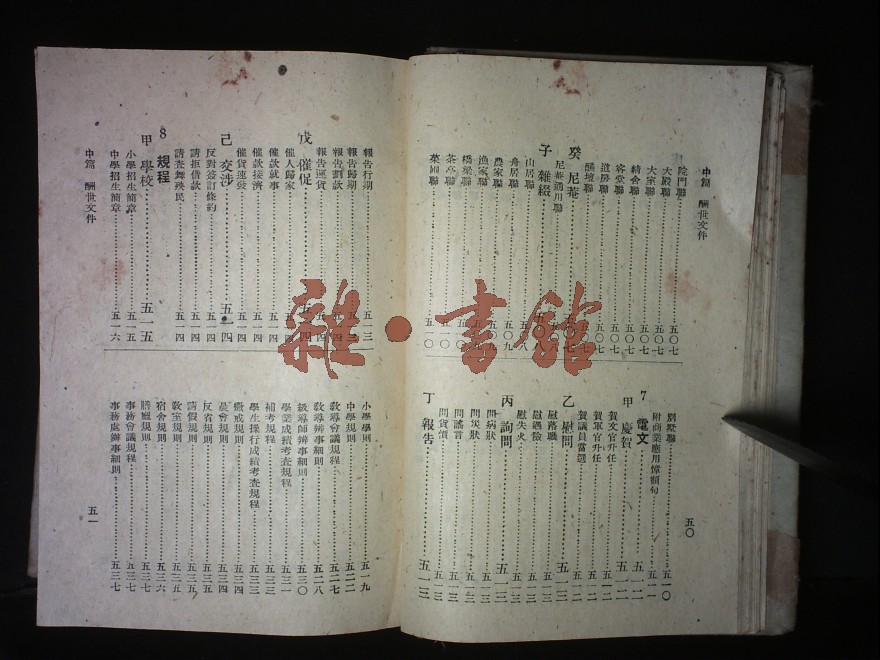 中篇 酬世文件
院門聯 五〇七
大殿聯 五〇七
大室聯 五〇七
精舍聯 五〇七
客堂聯 五〇七
道房聯 五〇七
醮壇聯 五〇七
癸 尼菴
尼菴適用聯
子 雜綴
山居聯 五〇八
舟居聯 五〇九
農家聯 五〇九
漁家聯
橋梁聯
茶亭聯 五一〇
菜園聯 五一〇
別墅聯 五一〇
附商業應用幛額句 五一一
7 電文 五一二
甲 慶賀 五一二
賀文官升任 五一二
賀軍官升任 五一二
賀議員當選 五一二
乙 慰問 五一三
慰落職 五一三
慰遇險 五一三
慰失火 五一三
丙 詢問 五一三
問病狀 五一三
問災狀 五一三
問謠言 五一三
問貨價 五一三
丁 報告 五一三
五〇
報告行期 五一三
報告歸期 五一三
報告劃款 五一四
報告運貨 五一四
戊 催促 五一四
催人歸家 五一四
催款就事 五一四
催款接濟 五一四
催貨速發 五一四
己 交涉 五一四
反對簽訂條約 五一四
請拒借款 五一四
請查舞殃民 五一四
8 規程
甲 學校 五一五
小學招生簡章 五一五
中學招生簡章 五一六
中篇 酬世文件
小學學則 五一九
中學規則 五二二
教導會議規程 五二七
教導辨事細則 五二八
級導師辨事細則 五三〇
學業成績考查規程 五三一
補考規程 五三三
學生操行成績考查規程 五三三
懲戒規則 五三四
晨會規則 五三四
反省規則 五三五
請假規則 五三五
教室規則 五三五
宿舍規則 五三六
膳廳規則 五三七
事務會議規程 五三七
事務處辦事細則 五三七
五一
雜·書館